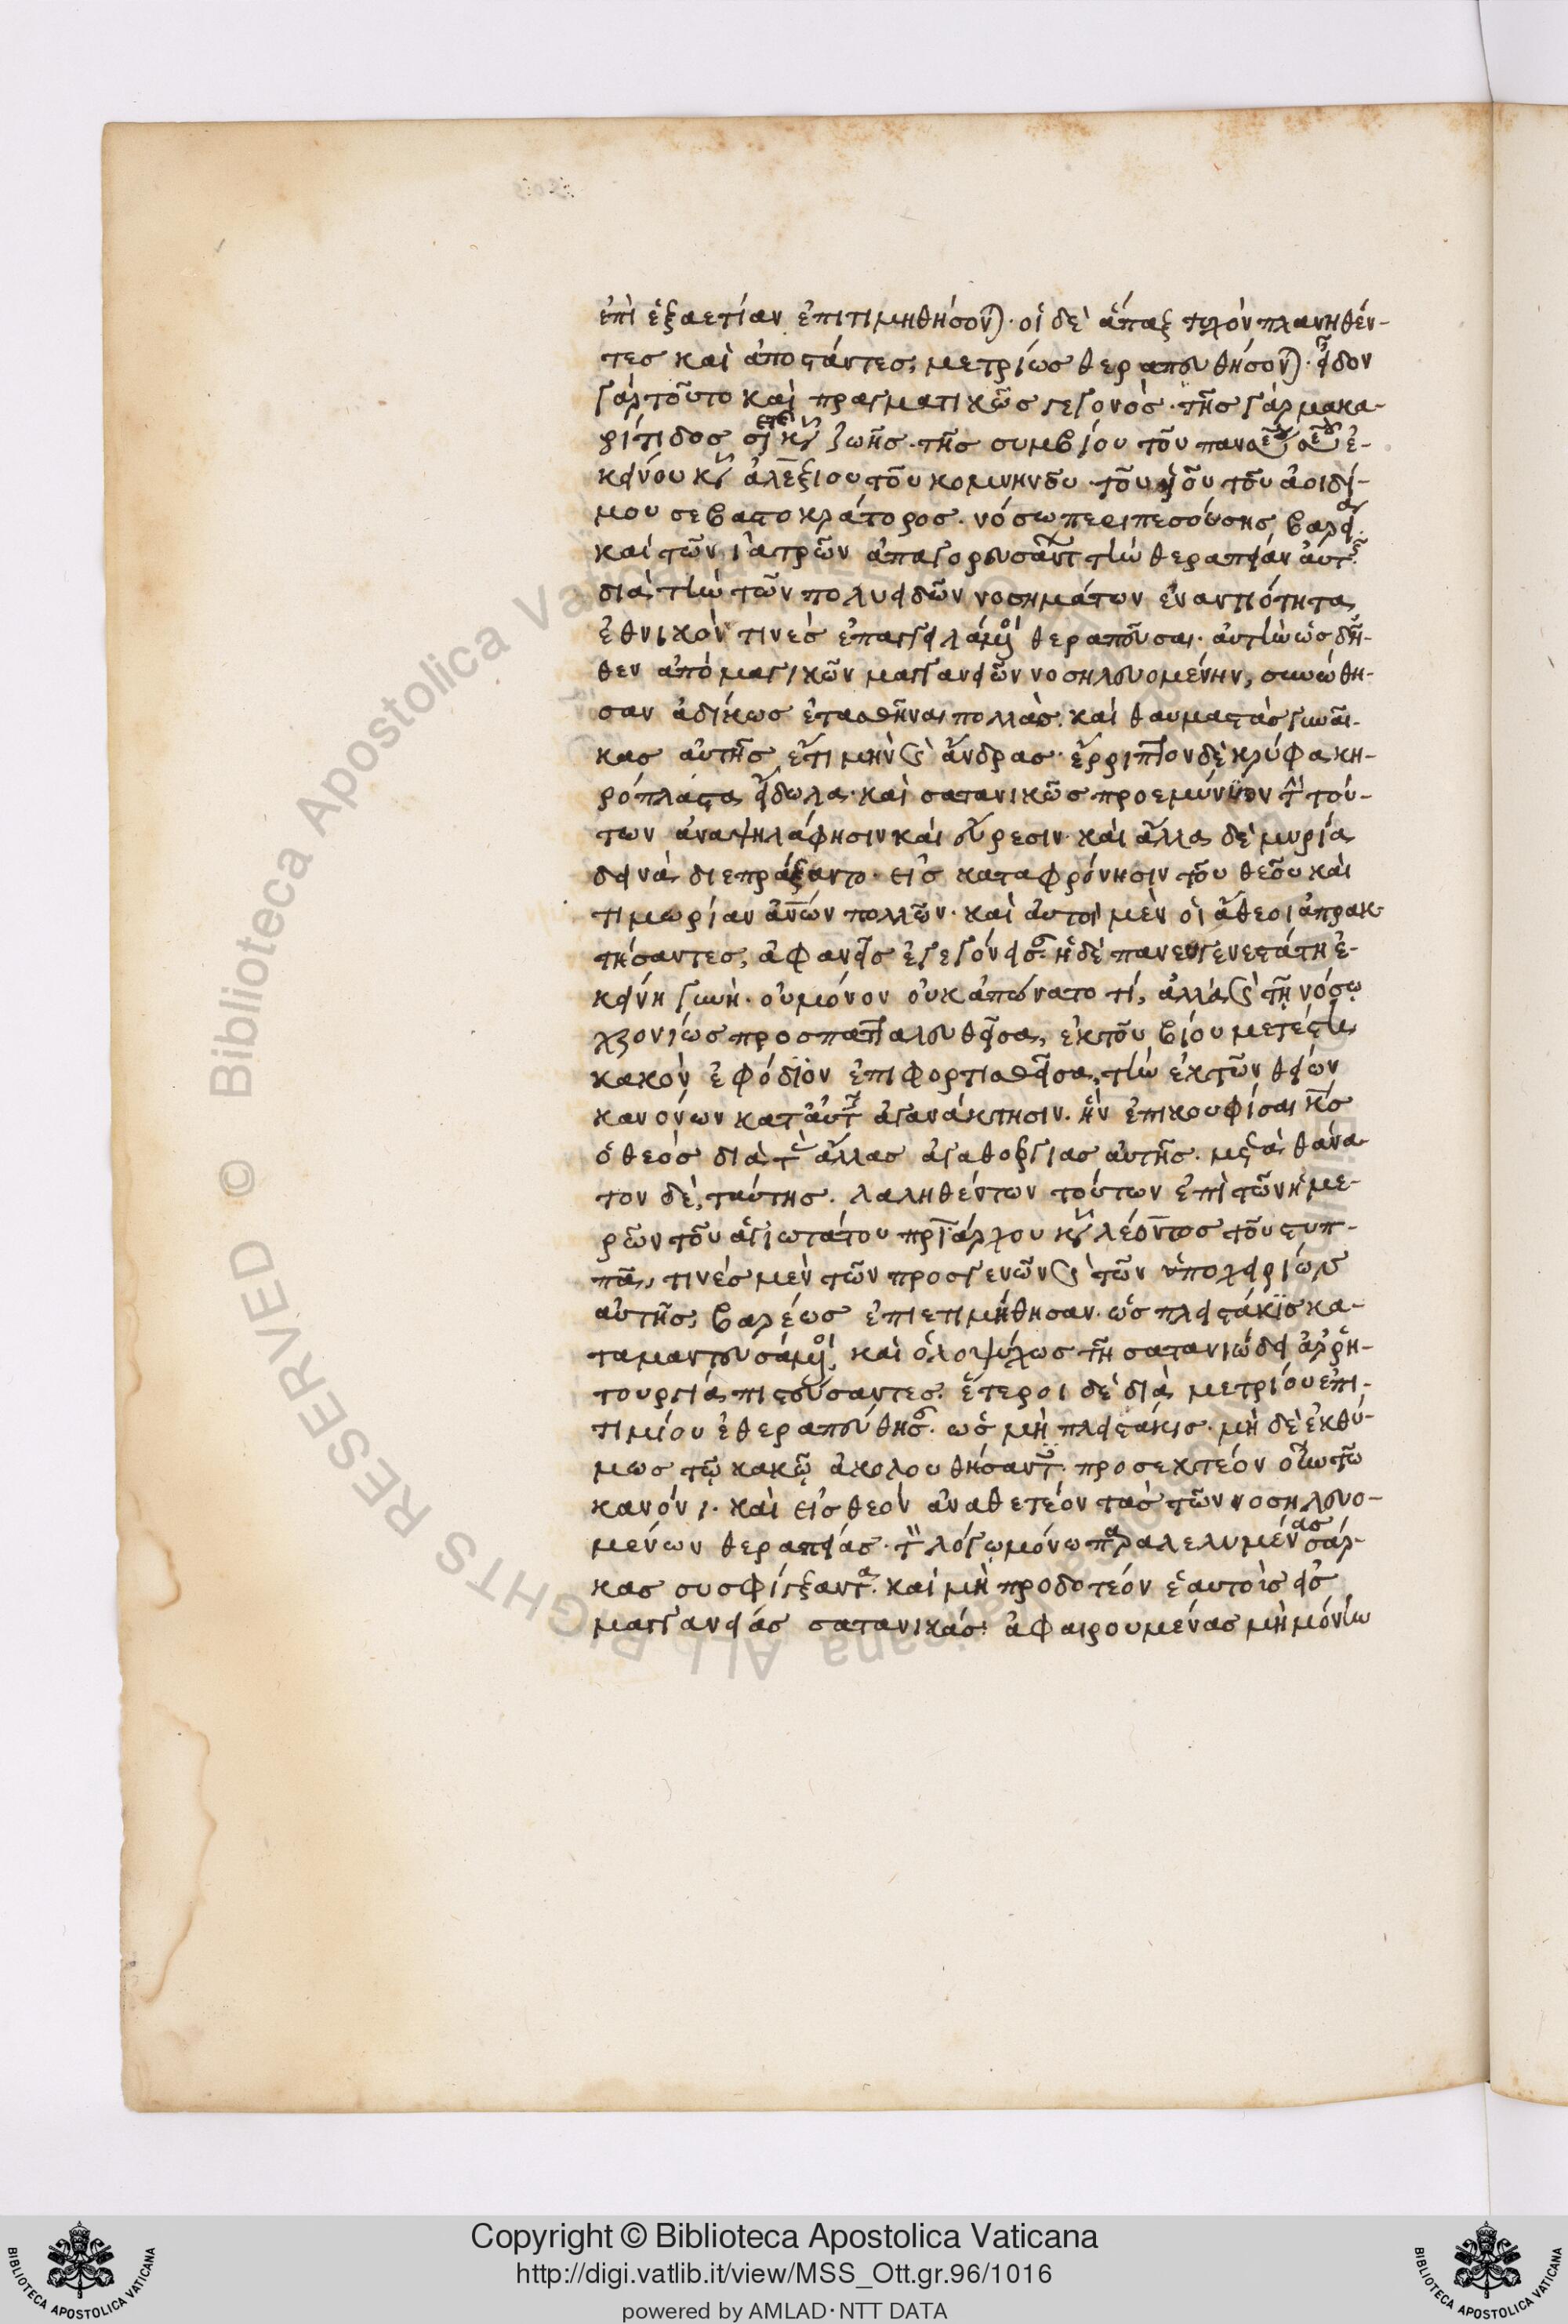 ἐπὶ ἑξαετίαν ἐπιτιμηθήσον). οἱ δὲ ἅπαξ τυχὸν πλανηθέν-
τες καὶ ἀποστάντες, μετρίως θεραπευθήσον). εἶδον
γὰρ τοῦτο καὶ πραγματικῶς γεγονός. τῆς γὰρ μακα-
ρίτιδος κυ ζωῆς. τῆς συμβίου τοῦ ἐ-
κείνου κυ ἀλεξίου τοῦ κομνηνοῦ τοῦ υἱοῦ τοῦ ἀοιδί-
μου σεβαστοκράτορος. νόσω περιπεσούσης βαρεία
καὶ τῶν ἰατρῶν ἀπαγορευσάντ τὴν θεραπείαν αὐτῆς
διὰ τὴν τῶν πολυειδῶν νοσημάτων ἐναντιότητα,
ἐθνικόν τινες ἐπαγγειλάμοι θεραπεῦσαι. αὐτὴν ὡς δῆ-
θεν ἀπὸ μαγικῶν μαγγανειῶν νοσηλευομένην, συνώθη-
σαν ἀδίκως ἐτασθῆναι πολλὰς καὶ θαυμαστὰς γυναῖ-
κας αὐτῆς ἔτι μὴν ϛ ἄνδρας. ἔρριπτον δὲ κρύφα κη-
ρόπλαστα εἴδωλα. καὶ σατανικῶς προεμήνυον τὴν τού-
των ἀναψηλάφησιν καὶ εὕρεσιν. καὶ ἄλλα δὲ μυρία
δεινὰ διεπράξαντο. εἰς καταφρόνησιν τοῦ θεοῦ καὶ
τιμωρίαν ἀνῶν πολλῶν. καὶ αὐτοὶ μὲν οἱ ἄθεοι ἀπρακ-
τήσαντες, ἀφανεῖς ἐγεγόνεισ. ἡ δὲ πανευγενεστάτη ἐ-
κείνη ζωὴ. οὐ μόνον οὐκ ἀπώνατο τί, ἀλλὰ ϛ τῇ νόσῳ
χρονίως προσπατταλευθεῖσα, ἐκ τοῦ βίου μετέστη
κακὸν ἐφόδιον ἐπιφορτισθεῖσα, τὴν ἐκ τῶν θείων
κανόνων κατ αὐτ ἀγανάκτησιν. ἣν ἐπικουφίσαι κς
ὁ θεὸς διὰ τὰς ἄλλας ἀγαθοεργίας αὐτῆς. μετὰ θάνα-
τον δὲ, ταύτης. λαληθέντων τούτων ἐπὶ τῶν ἡμε-
ρῶν τοῦ ἁγιωτάτου πριάρχου κυ λέοντος τοῦ στυπ-
πᾶ, τινὲς μὲν τῶν προσγενῶν ϛ τῶν ὑποχειρίων
αὐτῆς, βαρέως ἐπετιμήθησαν. ὡς πλειστάκις κα-
ταμαντευσάμοι, καὶ ὁλοψύχως τῇ σατανιώδει ἀρρη-
τουργία πιστεύσαντες. ἕτεροι δὲ διὰ μετρίου ἐπι-
τιμίου ἐθεραπεύθησ. ὡς μὴ πλειστάκις. μὴ δὲ ἐκθύ-
μως τῷ κακῷ ἀκολουθήσαντ. προσεκτέον οὖν τῶ
κανόνι. καὶ εἰς θεὸν ἀναθετέον τὰς τῶν νοσηλευο-
μένων θεραπείας. τὸν λόγῳ μόνω παραλελυμένας σάρ-
κας συσφίγξαντα. καὶ μὴ προδοτέον ἑαυτοῖς εἰς
μαγγανείας σατανικάς. ἀφαιρουμένας μὴ μόνην
Copyright © Biblioteca Apostolica Vaticana
http://digi.vatlib.it/view/MSS_Ott.gr.96/1016
powered by AMLAD·NTT DATA